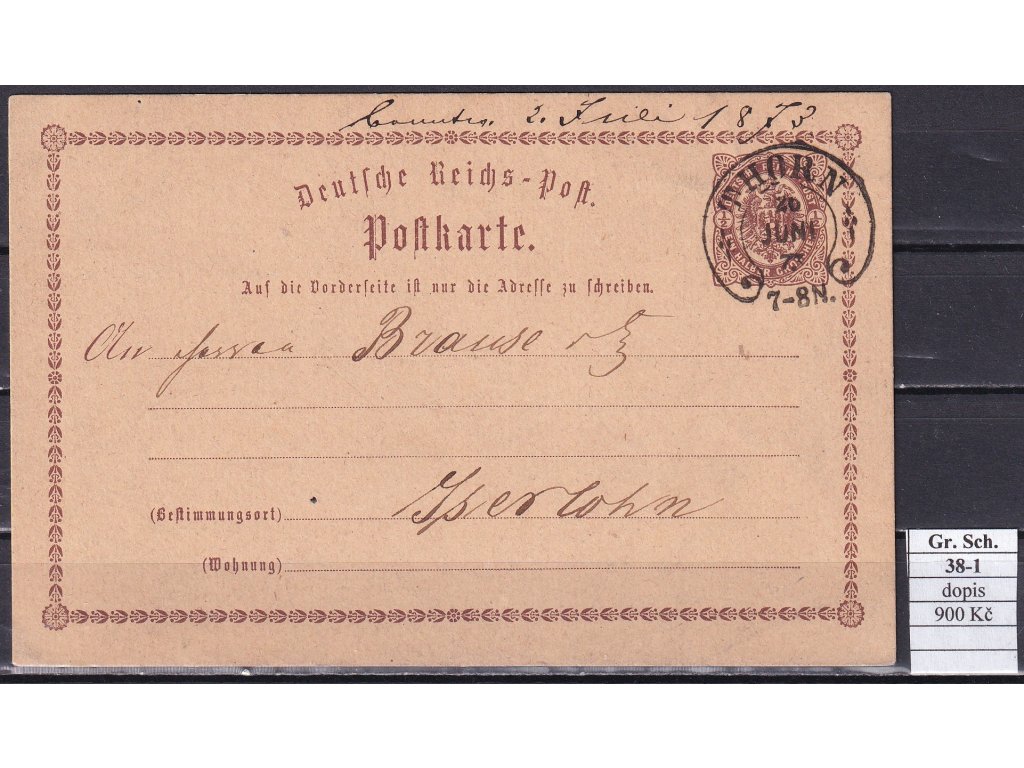 2. Juli 1873
Deutsche Reichs-Post.
Postkarte.
THORN
26
JUNI
7-8N.
HALBER
Auf die Vorderseite ist nur die Adresse zu schreiben.
An Herren Brause
(Bestimmungsort) Iserlohn
(Wohnung)
Gr. Sch.
38-1
dopis
900 Kč